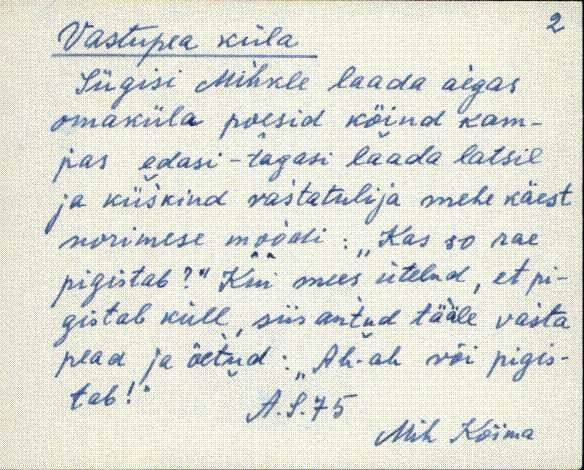 2
Vastupea küla
Sügisi Mihkle laada aegas
omaküla poesid köind kam-
pas edasi-tagasi laada latsil
ja küskind vastatulija mehe käest
norimese möödi: „Kas so nae
pigistab?" Kui mees ütelnd, et pi-
gistab küll, siis antud tääle vasta
pead ja öetud: „Ah-ah või pigis-
tab!"
A.S. 75
Mih Köima